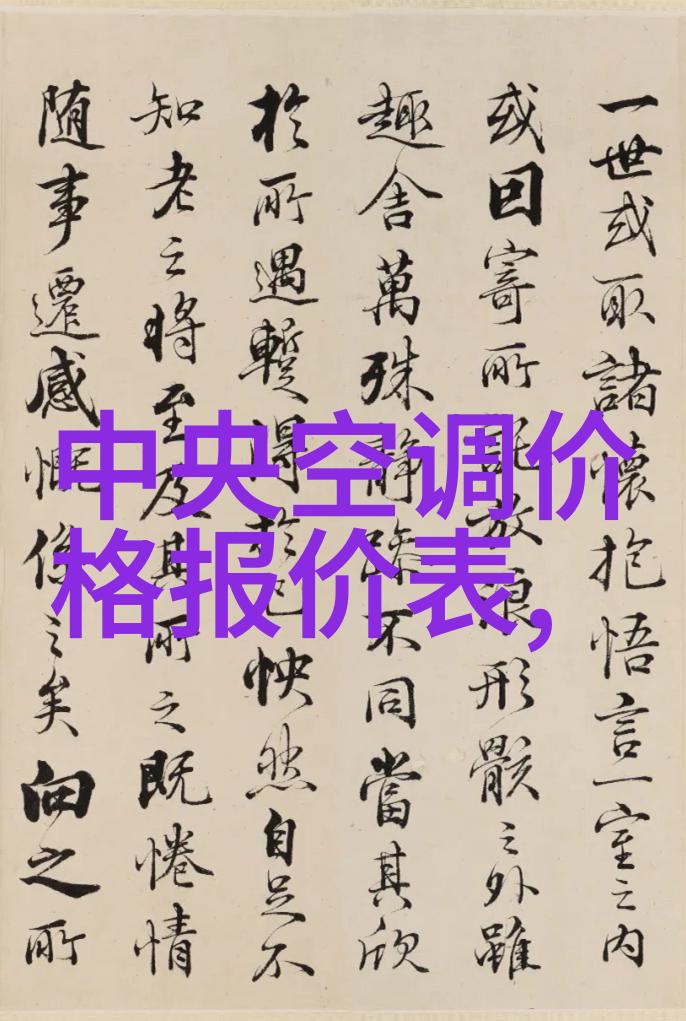 中央空调价
格报价表,
一世或取諸懷抱悟言一室之内
或因寄所託放浪形骸之外雖
趣舍萬殊静躁不同當其欣
於所遇蹔得於己怏然自足不
知老之將至及其所之既惓情
随事遷感慨係之矣向之所